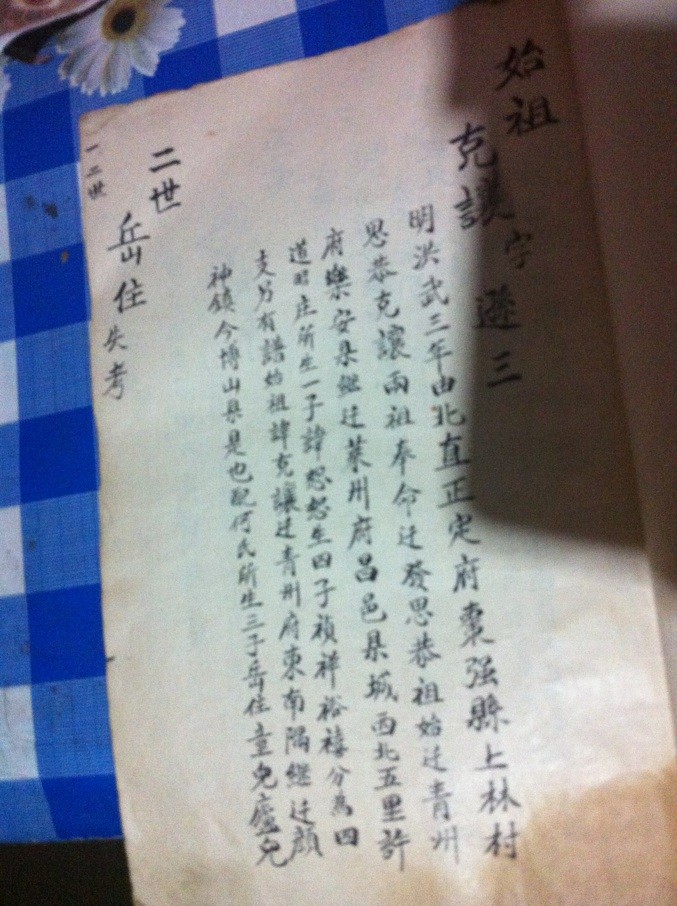 始祖
克讓字遜三
明洪武三年由北直正定府棗强縣上林村
思恭克讓兩祖奉命迁發思恭祖始迁青州
府樂安县継迁莱州府昌邑县城西北五里許
道昭庄所生一子諱恕恕生四子禎祥裕禧分為四
支另有譜始祖諱克讓迁青州府東南隅継迁顔
神鎮今博山县是也配何氏所生三子岳住童児廬児
二世
岳住失考
一二世